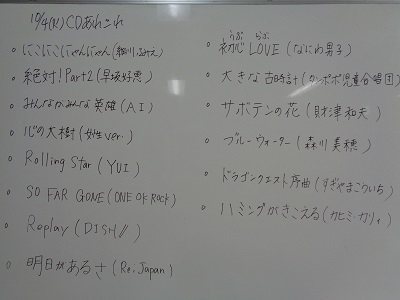 10/4(火)CDあれこれ
・にこにこにゃんにゃん(細川ふみえ)
・絶対!Part2(早坂好恵)
・みんながみんな英雄(AI)
・心の大樹(女性ver.)
・Rolling Star(YUI)
・SO FAR GONE(ONE OK ROCK)
・Replay(DISH//)
・明日があるさ(Re:Japan)
うぶ らぶ
・初心LOVE(なにわ男子)
・大きな古時計(タンポポ児童合唱団)
・サボテンの花(財津和夫)
・ブルーウォーター(森川美穂)
・ドラゴンクエスト序曲(すぎやまこういち)
・ハミングがきこえる(カヒミ・カリィ)